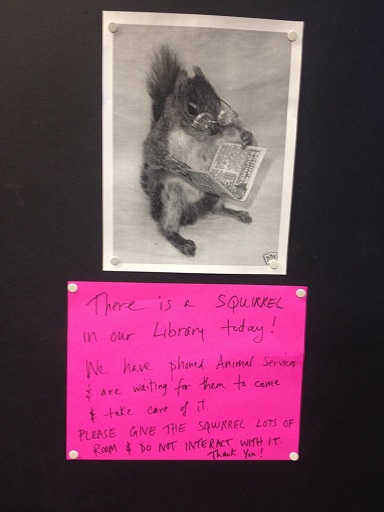 There is a SQUIRREL
in our Library today!
We have phoned Animal Services
& are waiting for them to come
& take care of it.
PLEASE GIVE THE SQUIRREL LOTS OF
ROOM & DO NOT INTERACT WITH IT.
Thank You!